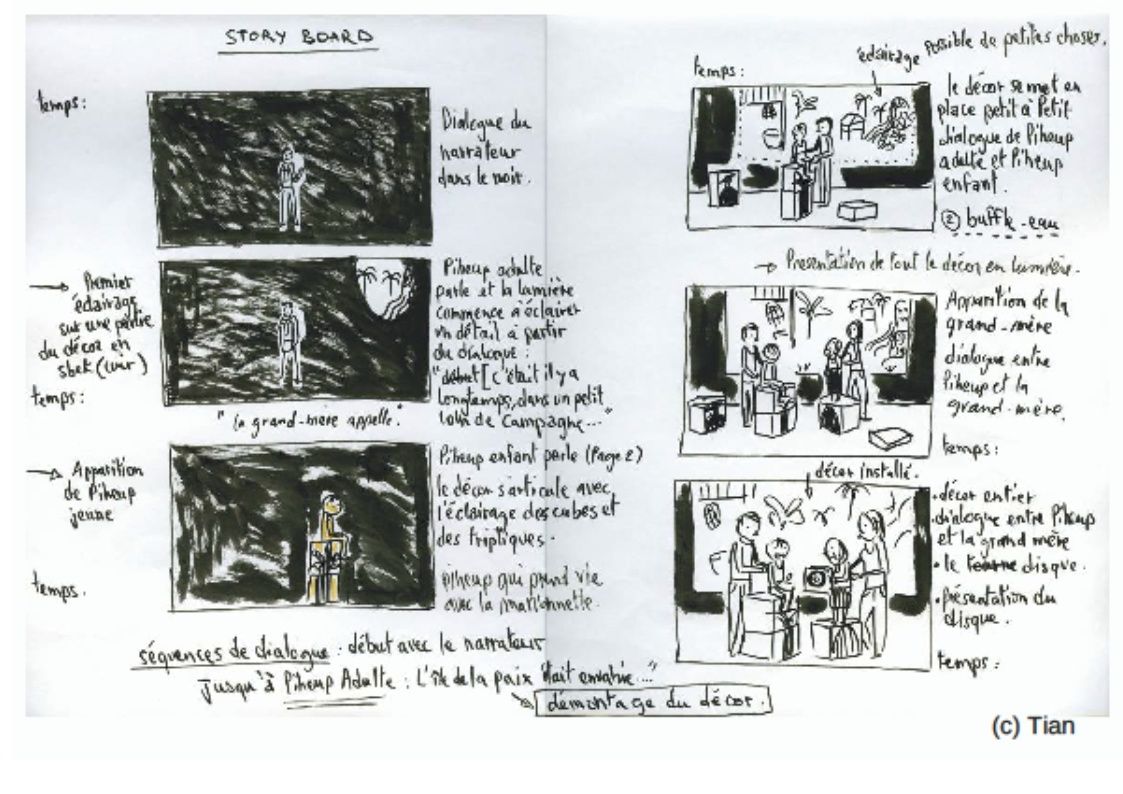 STORY BOARD
temps:
Dialogue du
narrateur
dans le noir.
→ Premier
éclairage
sur une partie
du décor en
sbek (cuir)
temps:
Piheup adulte
parle et la lumière
commence à éclairer
un détail à partir
du dialogue :
"début [c'était il y a
longtemps, dans un petit
coin de campagne..."
"la grand-mère appelle."
→ Apparition
de Piheup
jeune
temps.
Piheup enfant parle (Page 2)
le décor s'articule avec
l'éclairage des cubes et
des triptiques.
Piheup qui prend vie
avec la marionnette.
séquences de dialogue : début avec le narrateur
jusqu'à Piheup Adulte : L'île de la paix était envahie..."
démontage du décor.
temps:
éclairage possible de petites choses.
le décor se met en
place petit à petit
dialogue de Piheup
adulte et Piheup
enfant.
② buffle-eau
→ Présentation de tout le décor en lumière.
Apparition de la
grand-mère
dialogue entre
Piheup et la
grand-mère.
temps:
décor installé.
• décor entier
• dialogue entre Piheup
et la grand mère
• le disque.
• présentation du
disque.
temps:
(c) Tian